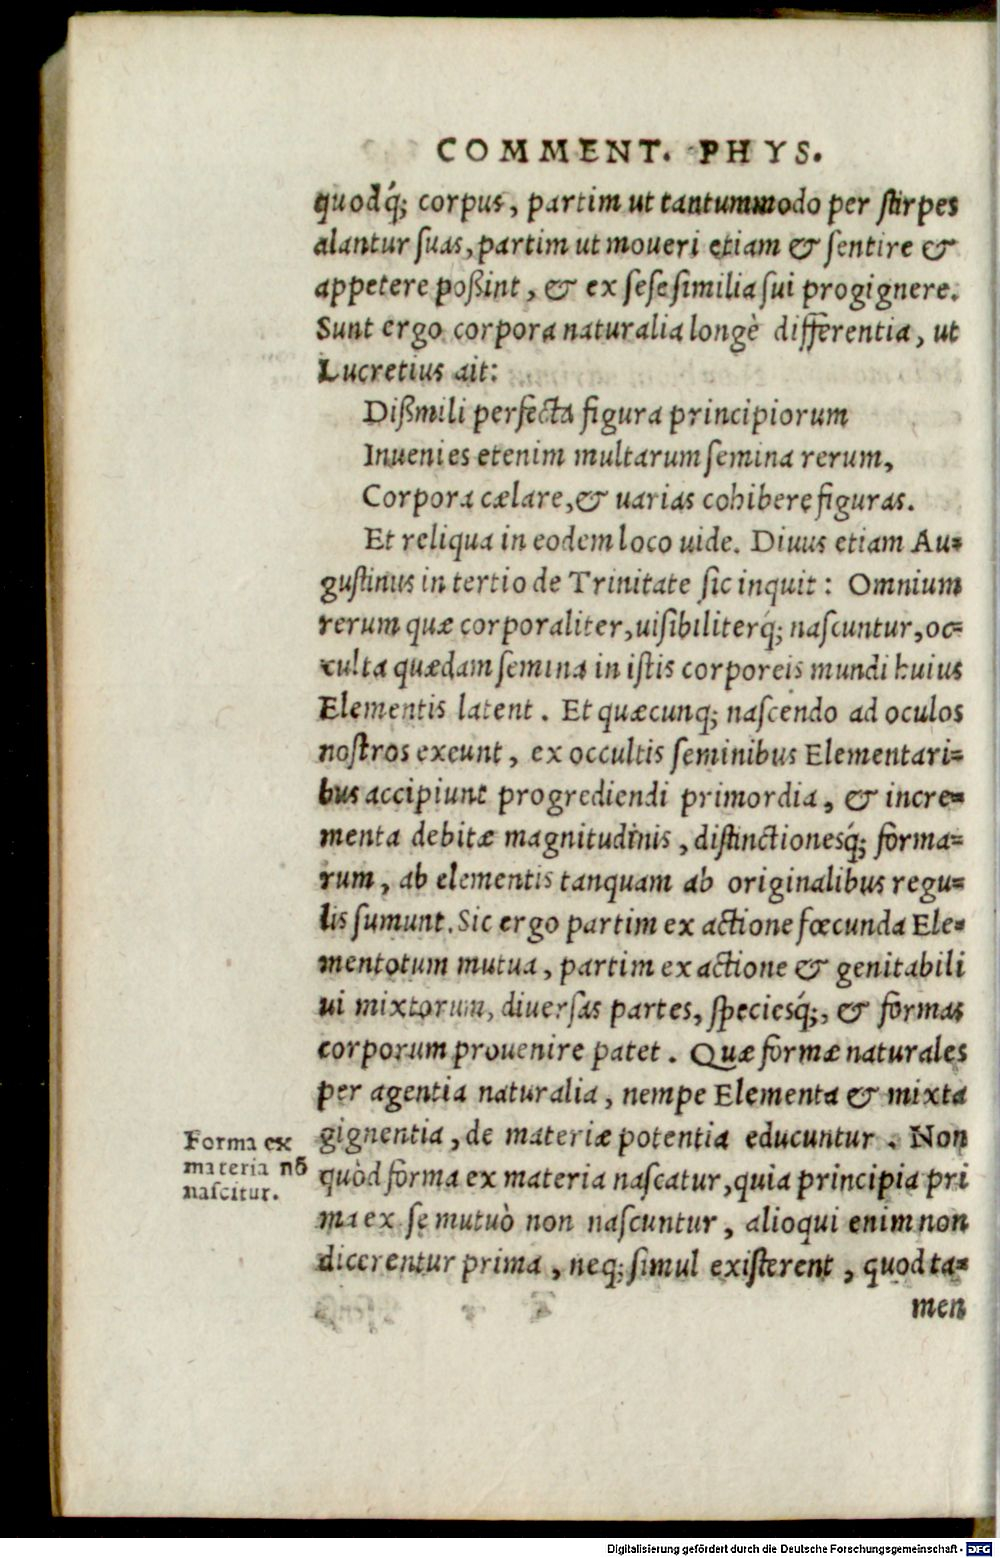 COMMENT. PHYS.
quodq́; corpus, partim ut tantummodo per ſtirpes
alantur ſuas, partim ut moueri etiam & ſentire &
appetere poßint, & ex ſeſe ſimilia ſui progignere.
Sunt ergo corpora naturalia longè differentia, ut
Lucretius ait:
Dißmili perfecta figura principiorum
Inuenies etenim multarum ſemina rerum,
Corpora cælare, & uarias cohibere figuras.
Et reliqua in eodem loco uide. Diuus etiam Au=
guſtinus in tertio de Trinitate ſic inquit: Omnium
rerum quæ corporaliter, uiſibiliterq́; naſcuntur, oc=
culta quædam ſemina in iſtis corporeis mundi huius
Elementis latent. Et quæcunq; naſcendo ad oculos
noſtros exeunt, ex occultis ſeminibus Elementari=
bus accipiunt progrediendi primordia, & incre=
menta debitæ magnitudinis, diſtinctionesq́; forma=
rum, ab elementis tanquam ab originalibus regu=
lis ſumunt. Sic ergo partim ex actione fœcunda Ele=
mentotum mutua, partim ex actione & genitabili
ui mixtorum, diuerſas partes, ſpeciesq́;, & formas
corporum prouenire patet. Quæ formæ naturales
per agentia naturalia, nempe Elementa & mixta
gignentia, de materiæ potentia educuntur. Non
quòd forma ex materia naſcatur, quia principia pri
ma ex ſe mutuò non naſcuntur, alioqui enim non
dicerentur prima, neq; ſimul exiſterent, quod ta=
men
Forma ex
materia nō
naſcitur.
Digitalisierung gefördert durch die Deutsche Forschungsgemeinschaft - DFG